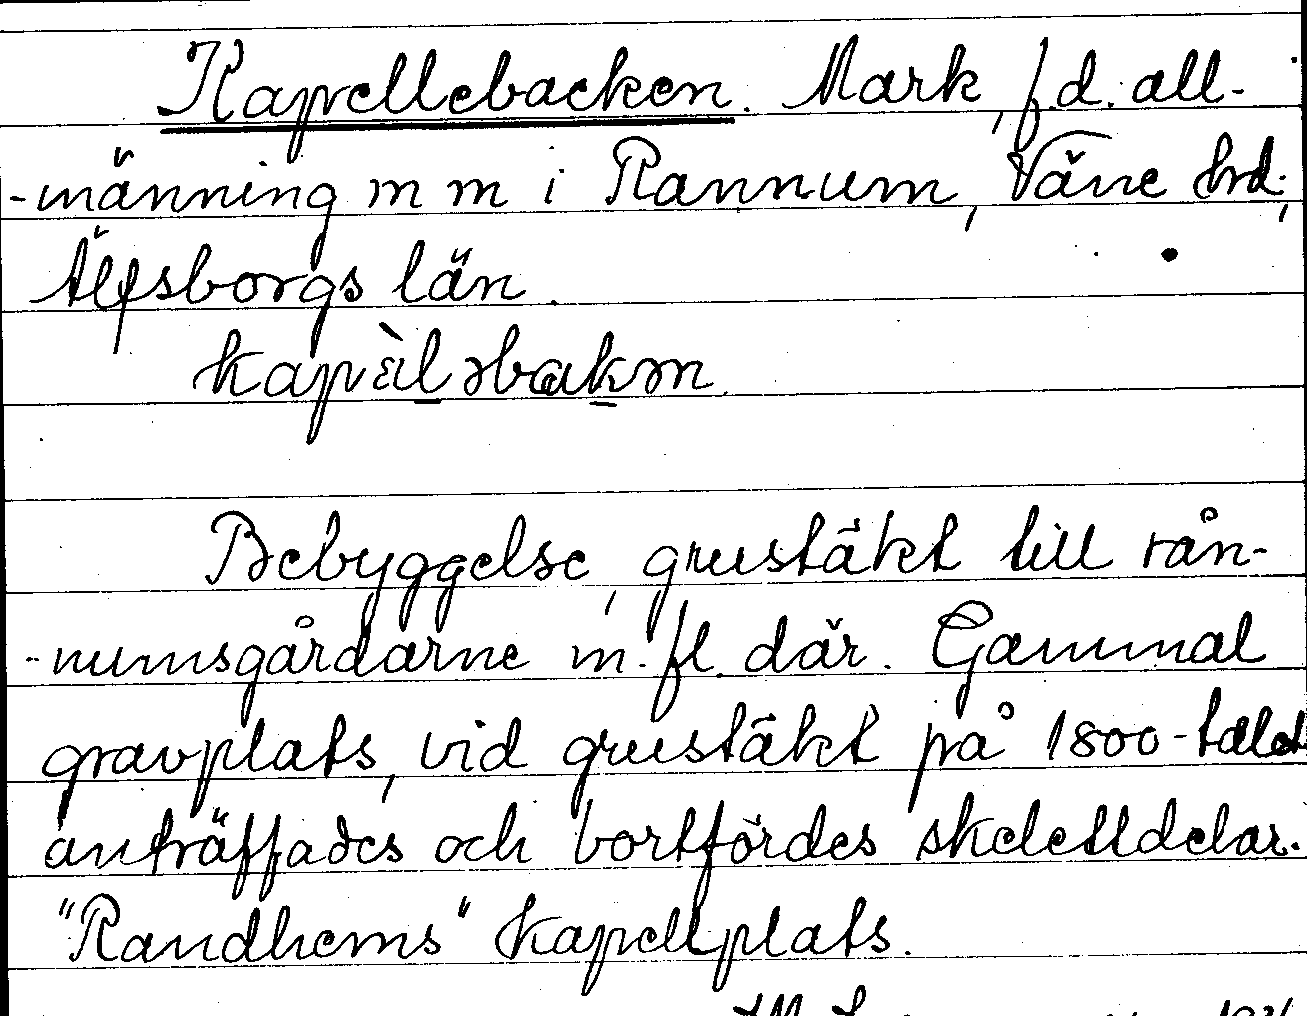 Kapellebacken. Mark, f.d. all-
-männing m m i Rannum, Väne hrd.,
Älfsborgs län.
kapàləbakən
Bebyggelse, grustäkt till rån-
-numsgårdarne m.fl. där. Gammal
gravplats, vid grustäkt på 1800-talet
anträffades och bortfördes skelettdelar.
"Randhems" kapellplats.